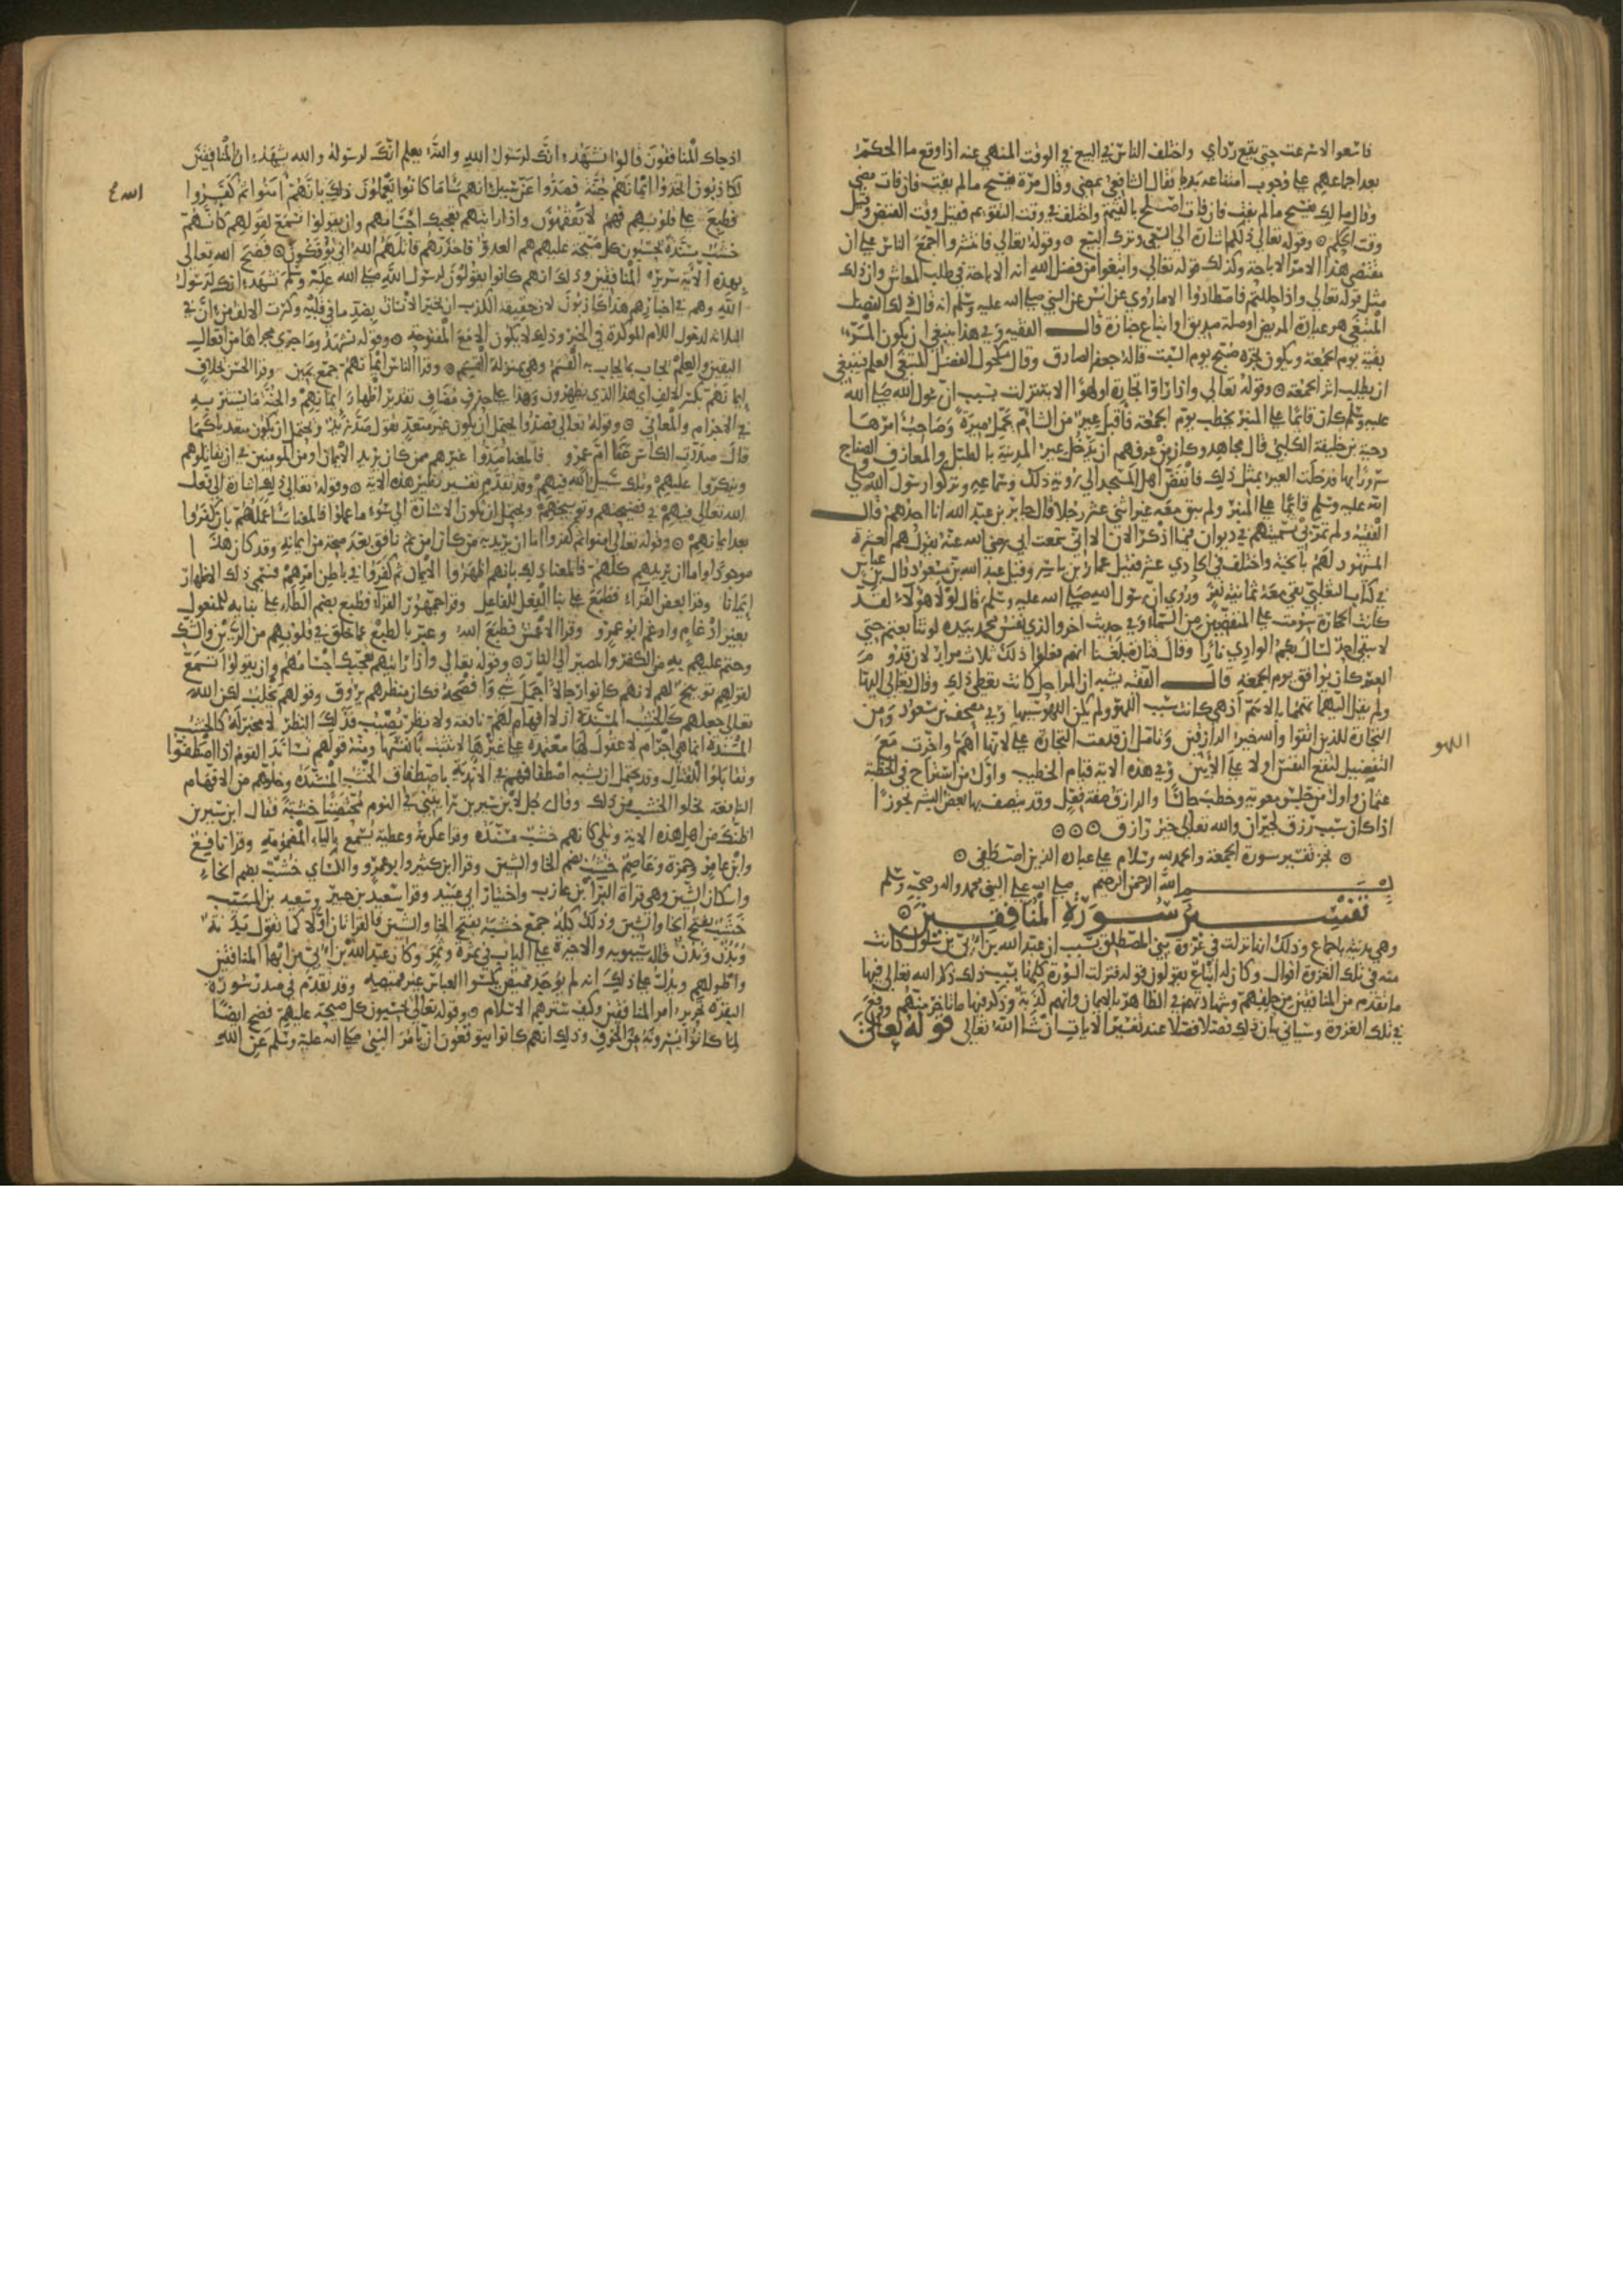 فاسعوا لاسرعت حتى يقع رداي واختلف الناس في البيع في الوقت المنهي عنه اذا وقع ما الحكم
بعد اجماعهم على وجوب امتناعه بدءا فقال الشافعي يمضي وقال مرة يفسخ ما لم يفت فان فات
وقال مالك يفسخ ما لم يفت فان فات اصلح بالقيمة واختلف في وقت التقويم فقيل وقت القبض وقيل
وقت الحكم وقوله تعالى ذلكم اشارة الى السعي وترك البيع وقوله تعالى فانتشروا اجمع الناس على ان
مقتضى هذا الامر الاباحة وكذلك قوله تعالى وابتغوا من فضل الله انه الاباحة في طلب المعاش وان ذلك
مثل قوله تعالى واذا حللتم فاصطادوا الا ما روي عن انس عن النبي صلى الله عليه وسلم انه قال ذلك الفضل
المبتغى هو عيادة المريض او صلة صديق او اتباع جنازة قال الفقيه وفي هذا ينبغي ان يكون المرء
بقية يوم الجمعة ويكون نحره صبح يوم السبت قاله جعفر الصادق وقال مكحول الفضل المبتغى العلم فينبغي
ان يطلب اثر الجمعة وقوله تعالى واذا راوا تجارة او لهوا الاية نزلت بسبب ان رسول الله صلى الله
عليه وسلم كان قائما على المنبر يخطب يوم الجمعة فاقبل عير من الشام تحمل ميرة وصاحب امرها
دحية بن خليفة الكلبي قال مجاهد وكان من عرفهم ان يدخل عير المدينة بالطبل والمعازف والصياح
سرورا بها فدخلت العير بمثل ذلك فانفض اهل المسجد الى رؤية ذلك وسماعه وتركوا رسول الله صلى
الله عليه وسلم قائما على المنبر ولم يبق معه غير اثني عشر رجلا قال جابر بن عبد الله انا احدهم قال
الفقيه ولم تمر بي تسميتهم في ديوان فيما اذكر الان الا اني سمعت ابي رضي الله عنه يقول هم العشرة
المشهود لهم بالجنة واختلف في الحادي عشر فقيل عمار بن ياسر وقيل عبد الله بن مسعود وقال بن عباس
في كتاب الثعلبي بقي معه ثمانية نفر وروي ان رسول الله صلى الله عليه وسلم قال لولا هؤلاء لقد
كانت الحجارة سومت على المنفضين من السماء وفي حديث اخر والذي نفس محمد بيده لو تتابعتم حتى
لا يبقى احد لسال بكم الوادي نارا وقال قتادة بلغنا انهم فعلوا ذلك ثلاث مرار لان قدوم
العير كان يوافق يوم الجمعة قال الفقيه
ولم يقل اليهما تهمما بالاهم اذ هي كانت سبب اللهو ولم يكن اللهو سببها وفي مصحف بن مسعود ومن
التجارة للذين اتقوا والله خير الرازقين وتامل ان قدمت التجارة على لانها اهم واخرت مع
التفضيل لتقع النفس اولا على الابين وفي هذه الاية قيام الخطيب واول من استراح في الخطبة
عثمان واول من جلس معوية وخطب جالسا والرازق صفة فعل وقد يتصف بها بعض البشر تجوزا
اذا كان سبب رزق لحيوان والله تعالى خير رازق
نجز تفسير سورة الجمعة والحمد لله وسلام على عباده الذين اصطفى
بسم الله الرحمن الرحيم صلى الله على النبي محمد واله وصحبه وسلم
تفسير سورة المنافقين
وهي مدنية باجماع وذلك انها نزلت في غزوة بني المصطلق بسبب ان عبد الله بن ابي بن سلول كانت
منه في تلك الغزوة اقوال وكان له اتباع يقولون قوله فنزلت السورة كلها بسبب ذلك ذكر الله تعالى فيها
ما تقدم من المنافقين من حلفهم وشهادتهم في الظاهر بالايمان وانهم كذبة وذكر فيها ما تاخر منهم ووقع
في تلك الغزوة وسياتي بيان ذلك فصلا فصلا عند تفسير الايات ان شا الله تعالى قوله تعالى
اللهو
اذ جاك المنافقون قالوا نشهد انك لرسول الله والله يعلم انك لرسوله والله يشهد ان المنافقين
لكاذبون اتخذوا ايمانهم جنة فصدوا عن سبيل الله انهم سا ما كانوا يعملون ذلك بانهم امنوا ثم كفروا
فطبع على قلوبهم فهم لا يفقهون واذا رايتهم تعجبك اجسامهم وان يقولوا تسمع لقولهم كانهم
خشب مسندة يحسبون كل صيحة عليهم هم العدو فاحذرهم قاتلهم الله انى يؤفكون فضح الله تعالى
بهذه الاية سريرة المنافقين وذلك انهم كانوا يقولون لرسول الله صلى الله عليه وسلم نشهد انك لرسول
الله وهم في اخبارهم هذا كاذبون لان حقيقة الكذب ان يخبر الانسان بضد ما في قلبه وكسرت الالف من ان في
الثلاثة لدخول اللام الموكدة في الخبر وذلك لا يكون الا مع المفتوحة وقوله نشهد وما جرى مجراها من افعال
اليقين والعلم تجاب بما يجاب به القسم وهي بمنزلة القسم وقرا الناس ايمانهم جمع يمين وقرا الحسن بخلاف
ايمانهم بكسر الالف اي هذا الذي يظهرون وهذا على حذف مضاف تقديره اظهار ايمانهم والجنة ما يستتر به
في الاجرام والمعاني وقوله تعالى فصدوا يحتمل ان يكون غير متعد تقول صد زيد ويحتمل ان يكون متعديا كما
قال صددت الكاس عنا ام عمرو فالمعنا صدوا غيرهم ممن كان يريد الايمان او من المومنين في ان يقاتلوهم
وينكروا عليهم وتلك سبيل الله فيهم وقد تقدم تفسير نظير هذه الاية وقوله تعالى ذلك اشارة الى فعل
الله تعالى فيهم في فضيحتهم وتوبيخهم ويحتمل ان تكون الاشارة الى سوء ما عملوا فالمعنا سا عملهم بان كفروا
بعد ايمانهم وقوله تعالى امنوا ثم كفروا اما ان يريد به من كان امن ثم نافق بعد صحة من ايمانه وقد كان هذا
موجودا واما ان يريدهم كلهم فالمعنا ذلك بانهم اظهروا الايمان ثم كفروا في باطن امرهم فسمي ذلك الاظهار
ايمانا وقرا بعض القراء فطبع على بنا الفعل للفاعل وقرا جمهور القراء فطبع بضم الطاء على بنايه للمفعول
بغير ادغام وادغم ابو عمرو وقرا الاعمش فطبع الله وعبر بالطبع عما خلق في قلوبهم من الريب والشك
وحتم عليهم به من الكفر والمصير الى النار وقوله تعالى واذا رايتهم تعجبك اجسامهم وان يقولوا تسمع
لقولهم توبيخ لهم لانهم كانوا رجالا اجمل شي وافصحه فكان منظرهم يروق وقولهم يخلب لكن الله
تعالى جعلهم كالخشب المسندة اذ لا افهام لهم نافعة ولا نظر يصيب فذلك النظر لا مخبر له كالخشب
المسندة انما هي اجرام لا عقول لها معتمدة على غيرها لا تثبت بانفسها ومنه قولهم تساند القوم اذا اصطفوا
وتقابلوا للقتال وقد يحتمل ان يشبه اصطفافهم في الاندية باصطفاف الخشب المسندة وخلوهم من الافهام
النافعة بخلو الخشب من ذلك وقال رجل لابن سيرين رايتني في النوم محتضنا خشبة فقال ابن سيرين
اظنك من اهل هذه الاية وتلى كانهم خشب مسنده وقرا عكرمة وعطية يسمع بالياء المضمومة وقرا نافع
وابن عامر وحمزة وعاصم خشب بضم الخا والشين وقرا ابن كثير وابو عمرو والكساي خشب بضم الخاء
واسكان الشين وهي قراة البرا بن عازب واختيار ابي عبيد وقرا سعيد بن جبير وسعيد بن المسيب
خشب بفتح الخا والشين وذلك كله جمع خشبة بفتح الخا والشين فالقراتان اولا كما تقول بدنة
وبدن وبدن قاله سيبويه والاخيرة على الباب في تمرة وتمر وكان عبد الله بن ابي من ابها المنافقين
واطولهم ويدل على ذلك انه لم يوجد قميص يكسوا العباس غير قميصه وقد تقدم في صدر سورة
البقرة تحرير امر المنافقين وكيف سترهم الاسلام وقوله تعالى يحسبون كل صيحة عليهم فضح ايضا
لما كانوا يسرونه من الخوف وذلك انهم كانوا يتوقعون ان يامر النبي صلى الله عليه وسلم عن الله